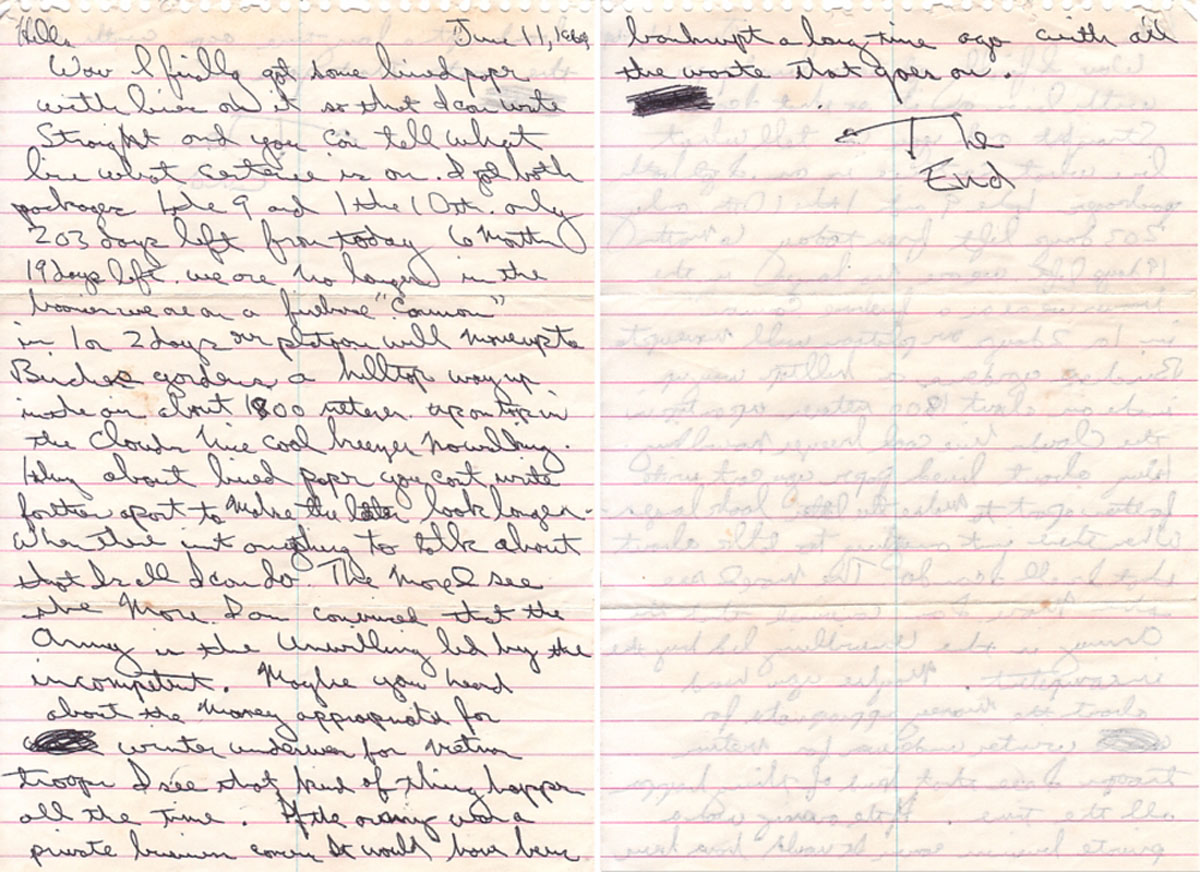 Hello June 11, 1969
Wow I finally got some lined paper
with lines on it so that I can write
Straight and you can tell what
line what sentence is on. I got both
packages the 9 and 1 the 10th. only
203 days left from today 6 Months
19 days left. we are no longer in the
we are on a firebase "Cannon"
in 1 or 2 days our platoon will move up to
gardens a hilltop way up
in the air about 1800 meters. up on top in
the clouds Nice cool breezes Nowilling.
thing about lined paper you cant write
farther apart to Make the letter look longer.
When there isnt anything to talk about
that Is all I can do. The More I see
the More I am convinced that the
Army is the Unwilling led by the
incompetent. Maybe you heard
about the Money appropriate for
winter underwear for
troops I see that kind of thing happen
all the time. If the army was a
private It would have been
bankrupt a long time ago with all
the waste that goes on.
The
End